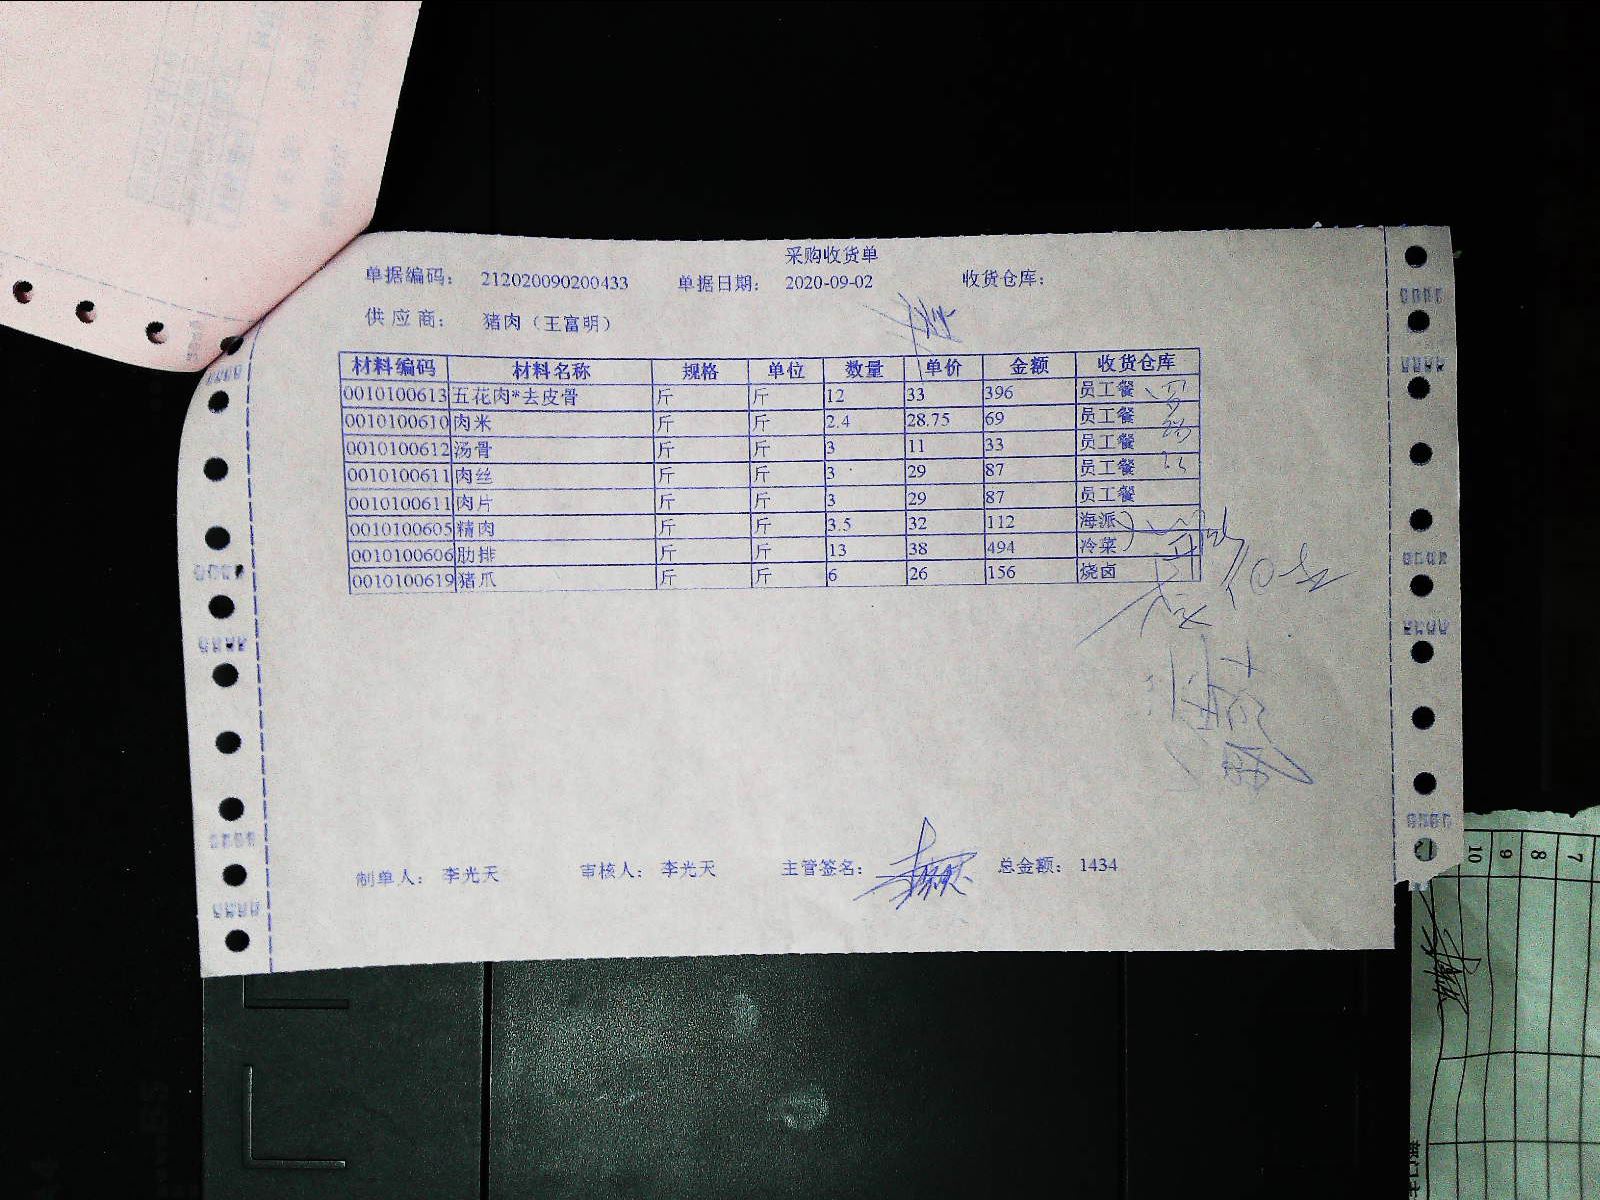 采购收货单
单据编码： 212020090200433 单据日期： 2020-09-02 收货仓库：
供应商： 猪肉（王富明）
材料编码 材料名称 规格 单位 数量 单价 金额 收货仓库
0010100613 五花肉*去皮骨 斤 斤 12 33 396 员工餐
0010100610 肉米 斤 斤 2.4 28.75 69 员工餐
0010100612 汤骨 斤 斤 3 11 33 员工餐
0010100611 肉丝 斤 斤 3 29 87 员工餐
0010100611 肉片 斤 斤 3 29 87 员工餐
0010100605 精肉 斤 斤 3.5 32 112 海派
0010100606 肋排 斤 斤 13 38 494 冷菜
0010100619 猪爪 斤 斤 6 26 156 烧卤
制单人： 李光天 审核人： 李光天 主管签名： 总金额： 1434
10 9 8 7